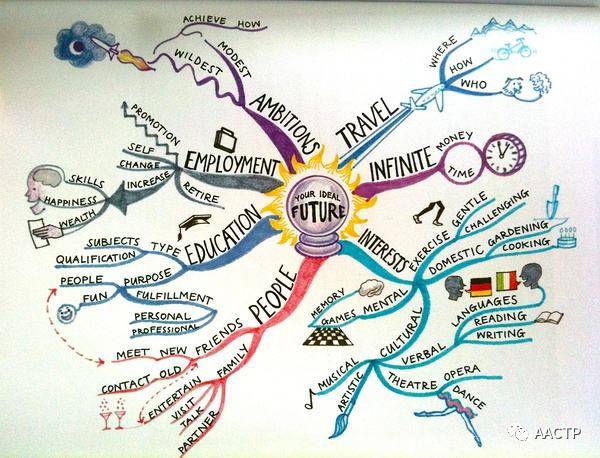 YOUR IDEAL
FUTURE
TRAVEL
WHERE
HOW
WHO
INFINITE
MONEY
TIME
INTERESTS
EXERCISE
GENTLE
CHALLENGING
DOMESTIC
GARDENING
COOKING
MENTAL
MEMORY
GAMES
CULTURAL
VERBAL
LANGUAGES
READING
WRITING
MUSICAL
ARTISTIC
THEATRE
OPERA
DANCE
PEOPLE
FRIENDS
MEET NEW
CONTACT OLD
FAMILY
ENTERTAIN
VISIT
TALK
PARTNER
EDUCATION
TYPE
SUBJECTS
QUALIFICATION
PURPOSE
PEOPLE
FUN
FULFILLMENT
PERSONAL
PROFESSIONAL
EMPLOYMENT
PROMOTION
SELF
CHANGE
INCREASE
SKILLS
HAPPINESS
WEALTH
RETIRE
AMBITIONS
MODEST
WILDEST
ACHIEVE HOW
AACTP